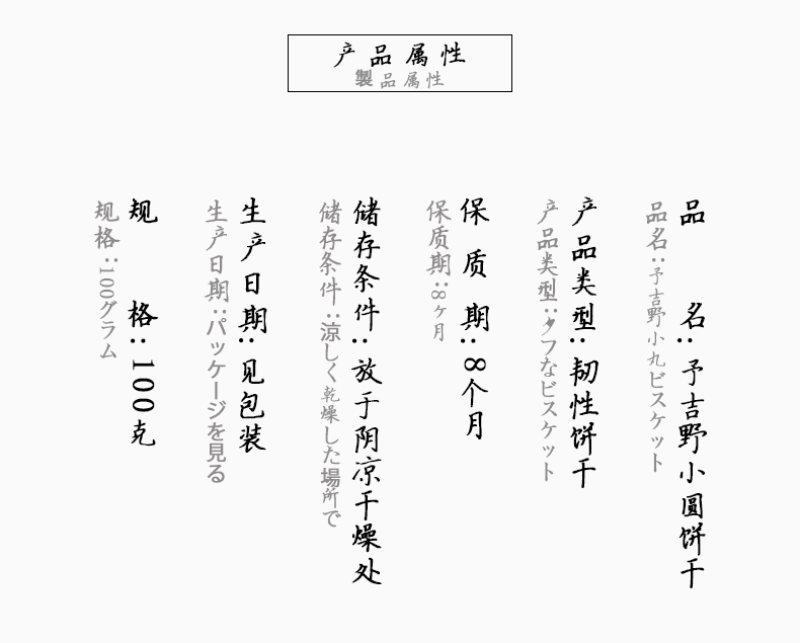 产品属性
製品属性
品名：予吉野小圆饼干
品名：予吉野小丸ビスケット
产品类型：韧性饼干
产品类型：タフなビスケット
保质期：8个月
保质期：8ヶ月
储存条件：放于阴凉干燥处
储存条件：涼しく乾燥した場所で
生产日期：见包装
生产日期：パッケージを見る
规格：100克
规格：100グラム